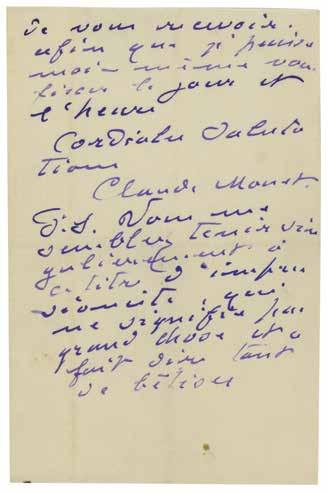 de vous recevoir.
afin que je puisse
moi-même vous
fixer le jour et
l'heure
Cordiales saluta
tions
Claude Monet.
P.S. Vous me
semblez tenir sin
gulièrement à
ce titre d'impres
sionniste, qui
ne signifie pas
grand chose et a
fait dire tant
de bêtises